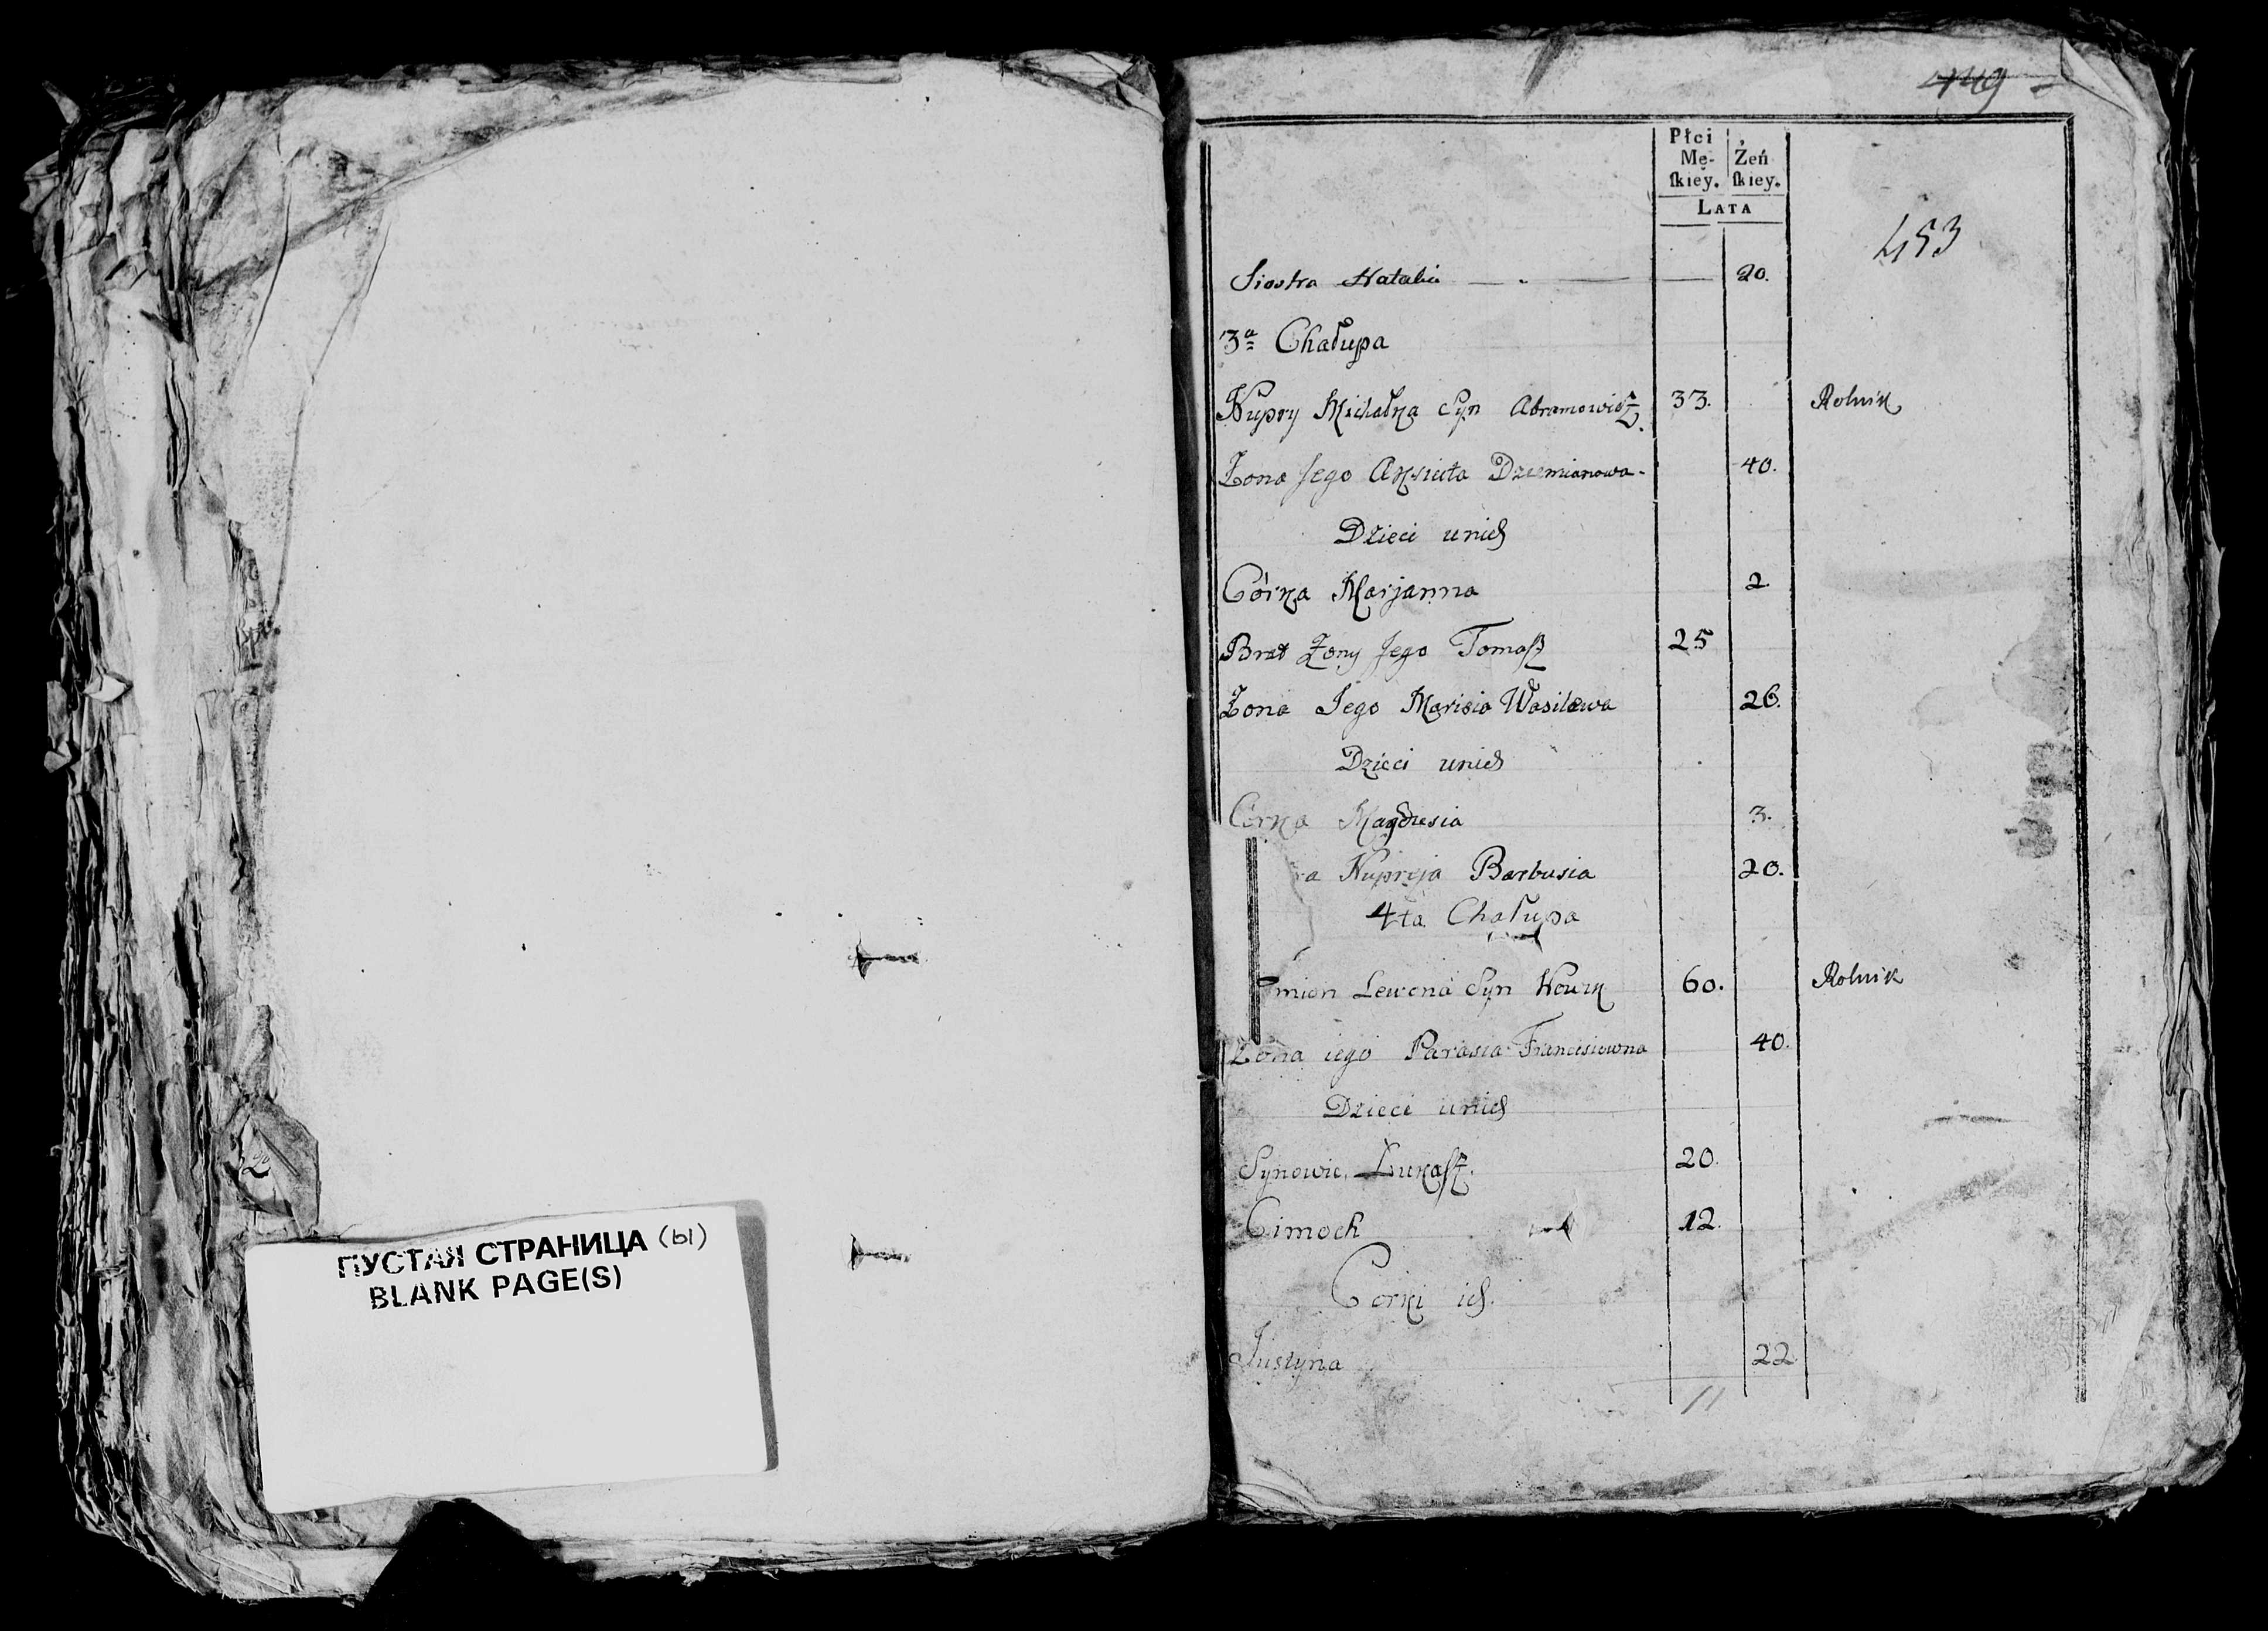 ПУСТАЯ СТРАНИЦА (ы)
BLANK PAGE(S)
449
Płci
Mę- Żeń
ſkiey. ſkiey.
LATA
453
Siostra Natalia — . — 20.
3a Chałupa
Kupry Michałka Syn Abramowicz 33. Rolnik
Żona Jego Dziemianowa - 40.
Dzieci unich
Córka Marjanna 2
Brat Żony Jego Tomaſz 25
Żona Jego Marisia Wasilewa 26.
Dzieci unich
Córka Magdzesia 3.
ra Kupreja Barbusia 20.
4ta Chałupa
mion Lewona Syn 60. Rolnik
Żona iego Parasia Francisiowna 40.
Dzieci unich
Synowie Łukaſz. 20.
Cimoch 12.
Corki ich.
Justyna 22
11